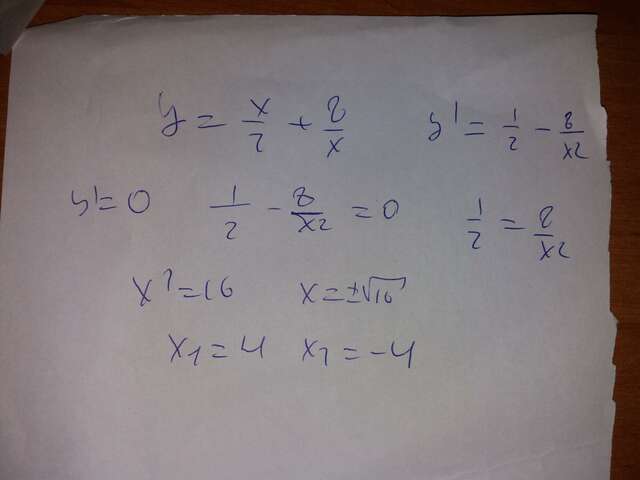 y = x/2 + 8/x   y' = 1/2 - 8/x²
y' = 0   1/2 - 8/x² = 0   1/2 = 8/x²
x² = 16   x = ±√16
x₁ = 4   x₂ = -4